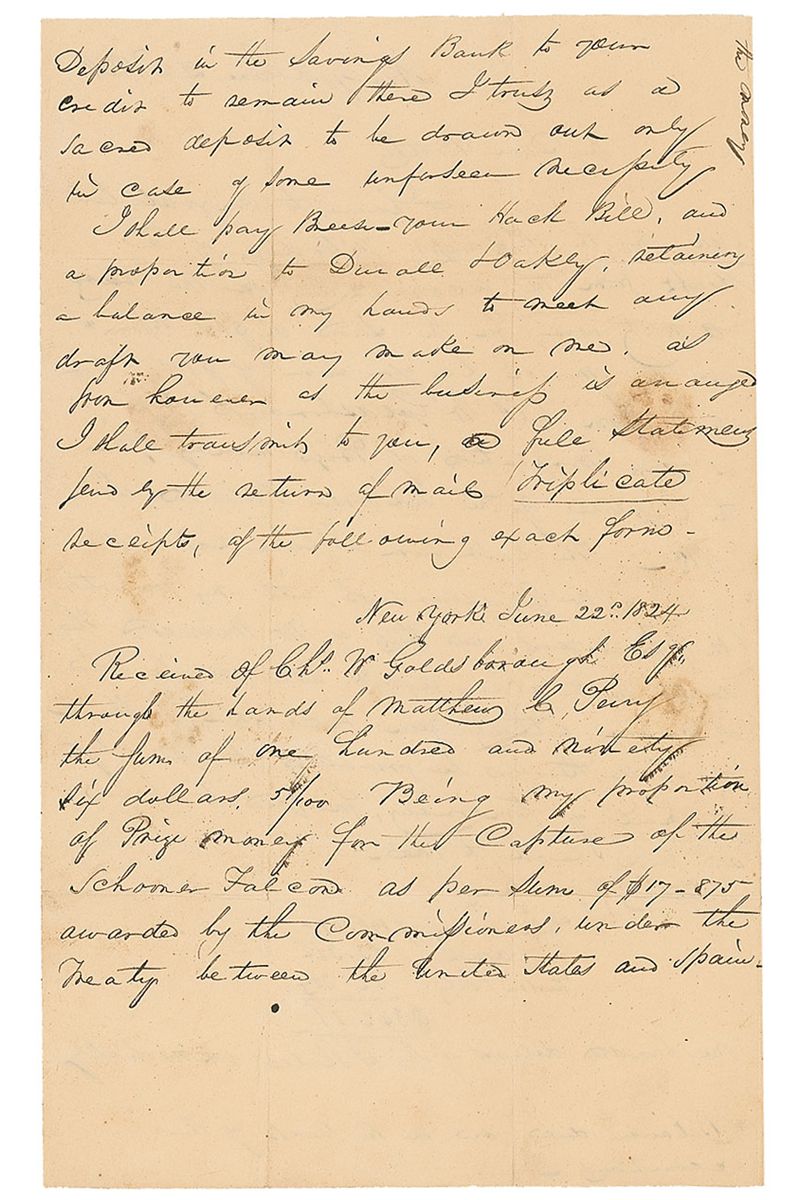 Deposit in the Savings Bank to your
credit to remain there I trust as a
sacred deposit to be drawn out only
in case of some unforseen necessity
I shall pay Breese your Hack Bill, and
a proportion to Duvall & Oakly, retaining
a balance in my hands to meet any
draft you may make on me. as
soon however as the business is arranged
I shall transmit to you, a full Statement
send by the return of mail Triplicate
receipts, of the following exact form -
New York June 22d. 1824
Received of Chs. W Goldsborough Esqr.
through the hands of Matthew C. Perry
the sum of one hundred and ninety
six dollars. 51/100 Being my proportion
of Prize money for the Capture of the
Schooner Falcon as per sum of $17-875
awarded by the Commissioners, under the
Treaty between the United States and Spain -
the money